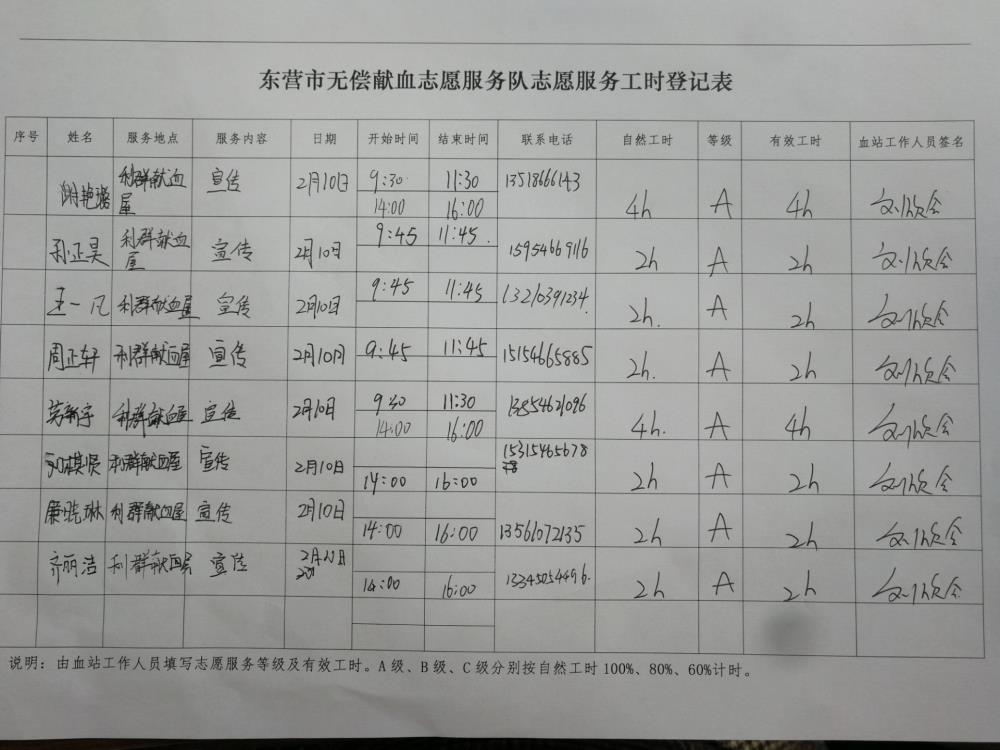 东营市无偿献血志愿服务队志愿服务工时登记表
序号 姓名 服务地点 服务内容 日期 开始时间 结束时间 联系电话 自然工时 等级 有效工时 血站工作人员签名
利群献血屋 宣传 2月10日 9:30 11:30 13518666143 4h A 4h
14:00 16:00
利群献血屋 宣传 2月10日 9:45 11:45 15954669116 2h A 2h
王一凡 利群献血屋 宣传 2月10日 9:45 11:45 13210391234 2h A 2h
周正轩 利群献血屋 宣传 2月10日 9:45 11:45 15154665885 2h A 2h
利群献血屋 宣传 2月10日 9:30 11:30 13554621096 4h A 4h
14:00 16:00
利群献血屋 宣传 2月10日 14:00 16:00 15315465678 2h A 2h
廉晓琳 利群献血屋 宣传 2月10日 14:00 16:00 13561072135 2h A 2h
齐丽洁 利群献血屋 宣传 14:00 16:00 13345054496 2h A 2h
说明：由血站工作人员填写志愿服务等级及有效工时。A 级、B 级、C 级分别按自然工时 100%、80%、60%计时。